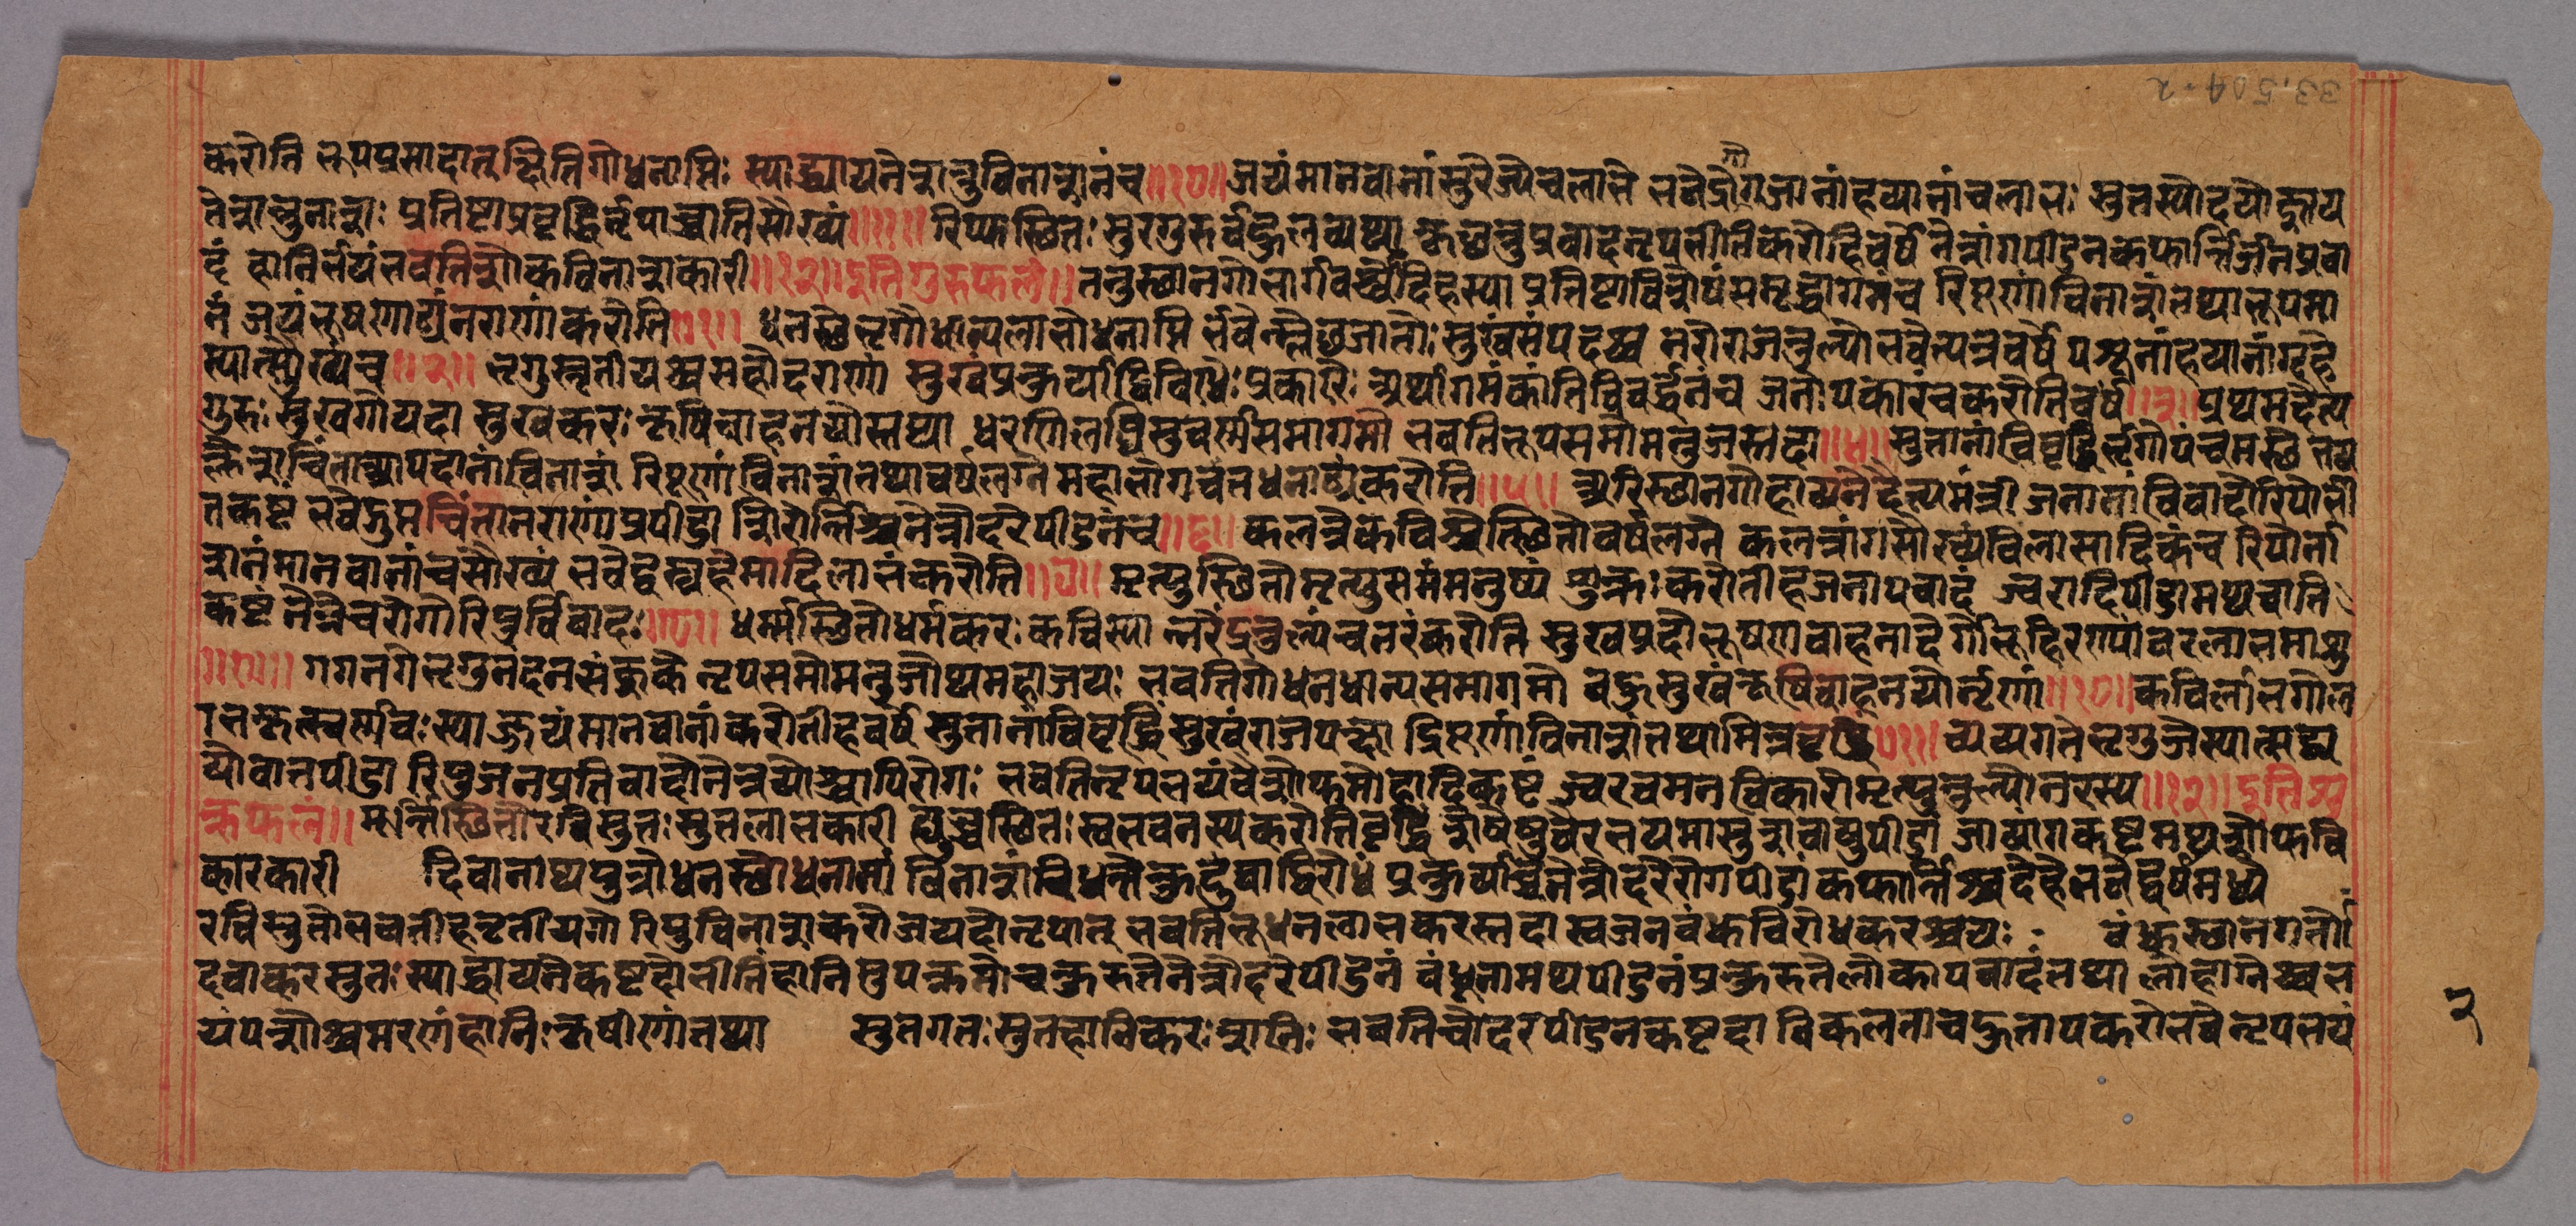 33.504.2
करोति भूपप्रसादात् क्षितिगोधनाप्तिः स्याद्व्यायनेशत्रुविनाशनंच ॥१०॥ जयंमानवानां सुरेज्येचलाभे भवेद्भोगजानांहयानांचलाभः सुतस्योदयोद्भूतय
तेशत्रुनाशः प्रतिष्टाप्रवृद्धिर्नृपाच्चातिसौख्यं ॥११॥ रिप्फस्थितः सुरगुरुर्बहुलव्ययश्च प्रवादनृपभीतिकरोहिवर्षे नेत्रांगपीडनकफार्त्तिजनप्रवा
दं हानिर्भयंभवतिशोकविनाशकारी ॥१२॥ इतिगुरुफलं ॥ तनुस्थानगोभार्गवश्चेदिहस्या प्रतिष्टाविशेषंसमृद्ध्यागमंच रिपूणांविनाशंतथाभूपमा
नं जयंभूषणाद्यंनराणांकरोति ॥१॥ धनस्थेभृगौधान्यलाभोधनाप्तिर्भवेन्म्लेछजातौः सुखंसंपदश्च नरोराजतुल्योभवेत्यत्रवर्षे पशूनांहयानांगृहे
स्यात्सौख्यंच ॥२॥ भृगुस्तृतीयश्चसहोदराणां सुखंप्रकुर्याद्विविधैः प्रकारैः अर्थागमंकांतिविवर्द्धनंच जनोपकारंचकरोतिवर्षे ॥३॥ प्रथमदैत्य
गुरुः सुखगोयदा सुखकरः कृषिवाहनयोस्तथा धरणिलब्धिसुवर्णसमागमो भवतिभूपसमोमनुजस्तदा ॥४॥ सुतानांविवृद्धिर्भृगौपंचमस्थे तथ
क्लेशचिंताव्यापदानांविनाशं रिपूणांविनाशंतथावर्षलग्ने महालोगचंतधनाढ्यंकरोति ॥५॥ अरिस्थानगोहायनेदैत्यमंत्री जनानांविवादोरिपोर्भी
तकष्टं भवेद्गुप्तचिंतानराणांप्रपीडा शिरोर्त्तिश्चनेत्रोदरेपीडनंच ॥६॥ कलत्रेकविश्चेत्स्थितोवर्षलग्ने कलत्रांगसौख्यंविलासादिकंच रिपोर्ना
शनंमानवानांचसौख्यं भवेद्वस्त्रहेमादिलाभंकरोति ॥७॥ मृत्युस्थितोमृत्युसमंमनुष्यं शुक्रः करोतीहजनापवादं ज्वरादिपीडामथचाति
कष्टं नेत्रेचरोगोरिपुर्विवादः ॥८॥ धर्म्मस्थितोधर्मकरः कविस्या न्नरेंद्रतुल्यंचनरंकरोति सुखप्रदोभूषणवाहनादे र्गोभूहिरण्यांबरलाभमाशु
॥९॥ गगनगेभृगुनदनसंकुके नृपसमोमनुजोथमहाजयः भवतिगोधनधान्यसमागमो बहुसुखंकृषिवाहनयोर्नृणां ॥१०॥ कविर्लाभगोल
भकृत्स्वर्णवः स्या ज्जयंमानवानां करोतीहवर्षे सुतानांविवृद्धिंसुखंराजपक्षा द्रिपूणांविनाशंतथामित्रवृद्धिं ॥११॥ व्ययगतेभृगुजेस्यात्सद्व्य
योवातपीडा रिपुजनप्रतिवादोनेत्रयोश्चापिरोगः भवतिनृपभयंवैशोकमोहादिकष्टं ज्वरवमनविकारोमृत्युतुल्योनरस्य ॥१२॥ इतिशु
क्रफलं ॥ मूर्त्तिस्थितोरविसुतः सुतलाभकारी ह्युच्चस्थितः स्वभवनस्यकरोतिवृद्धिं शेषेषुवैरभयमाशुशवायुपीडां जायांगकष्टमथशोकवि
कारकारी दिवानाथपुत्रोधनस्थोधनानां विनाशंविधत्तेकुटुंबाद्विरोधं प्रकुर्याच्चनेत्रोदरेरोगपीडां कफार्त्तिश्चदेहेभवेद्वर्षमध्ये
रविसुतोभवतीहतृतीयगो रिपुविनाशकरोजयदोनृपात् भवतिभूधनलाभकरस्तदा स्वजनबंधविरोधकरश्चयः बंधुस्थानगतो
दिवाकरसुतः स्याद्धायनेकष्टदोभीतिंहानिमुपक्रमोचकुरुतेनेत्रोदरेपीडनं बंधूनामथपीडनंप्रकुरुतेलोकापवादंतथा लोहाग्नेश्चभ
यंपशोश्चमरणंहानिः कृषीणांतथा सुतगतः सुतहाविकरः शनिः भवतिचोदरपीडनकष्टदा विकलताचहुतापकरोभवेन्नृपभयं
२